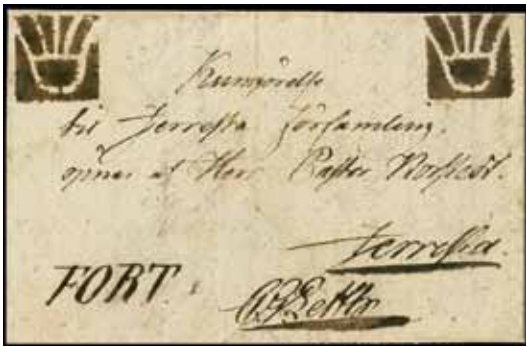 Kungörelse
til Jerresta församling,
opnas af Herr Paster
Jerresta.
FORT